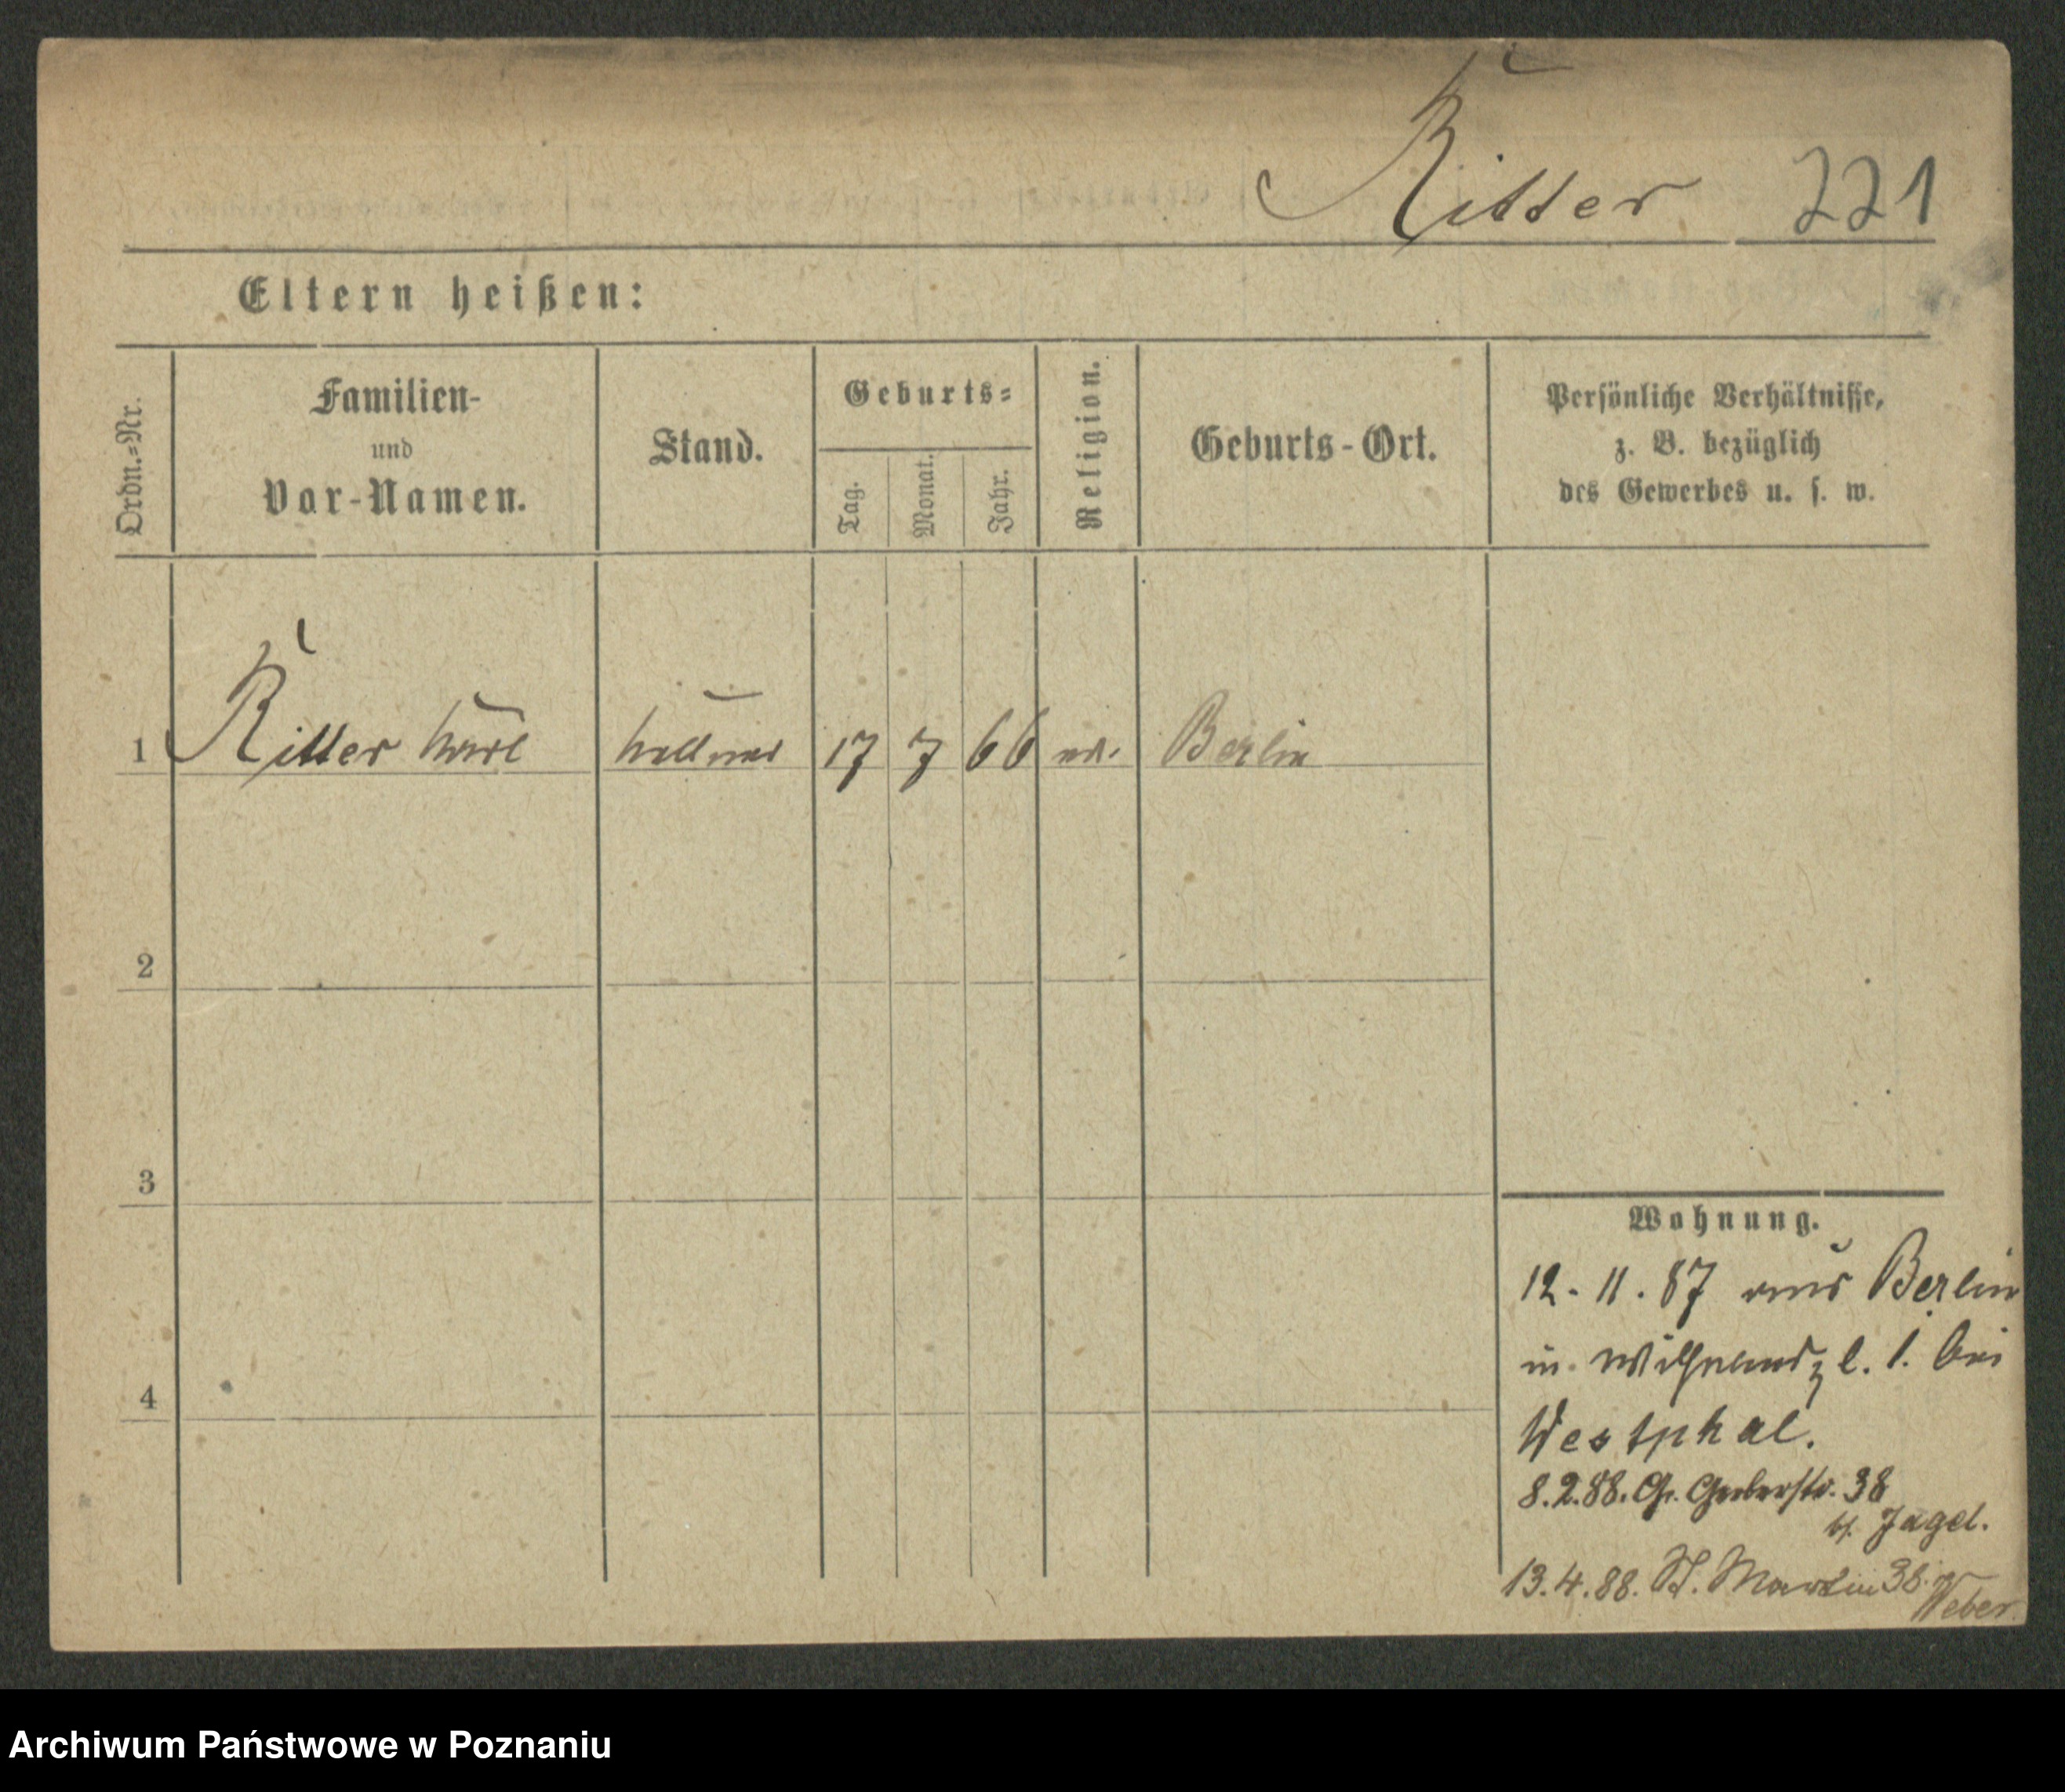 Ritter 221
Eltern heißen:
Ordn.-Nr.
Familien-
und
Vor-Namen.
Stand.
Geburts-
Tag.
Monat.
Jahr.
Religion.
Geburts-Ort.
Persönliche Verhältnisse,
z. B. bezüglich
des Gewerbes u. s. w.
1 Ritter Karl Kellner 17 7 66 ev. Berlin
2
3
4
Wohnung.
12. 11. 87 aus Berlin
n. Wilhelmspl. 1. bei
Westphal.
8.2.88. Gr. Gerberstr. 38
b/. Jagel.
13.4.88. St. Martin 38.
Weber.
Archiwum Państwowe w Poznaniu